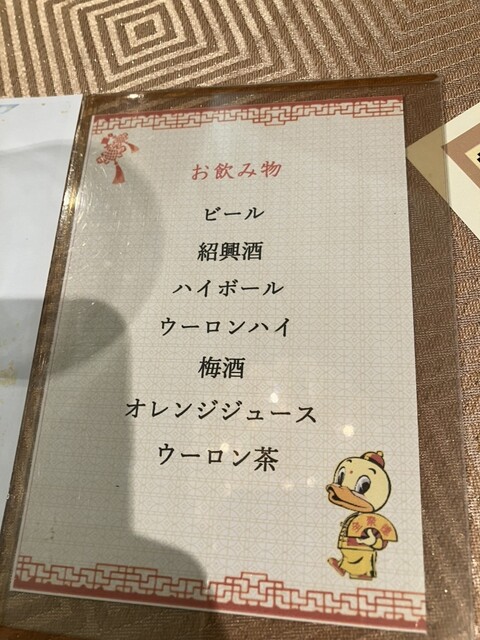 お飲み物
ビール
紹興酒
ハイボール
ウーロンハイ
梅酒
オレンジジュース
ウーロン茶
全聚德